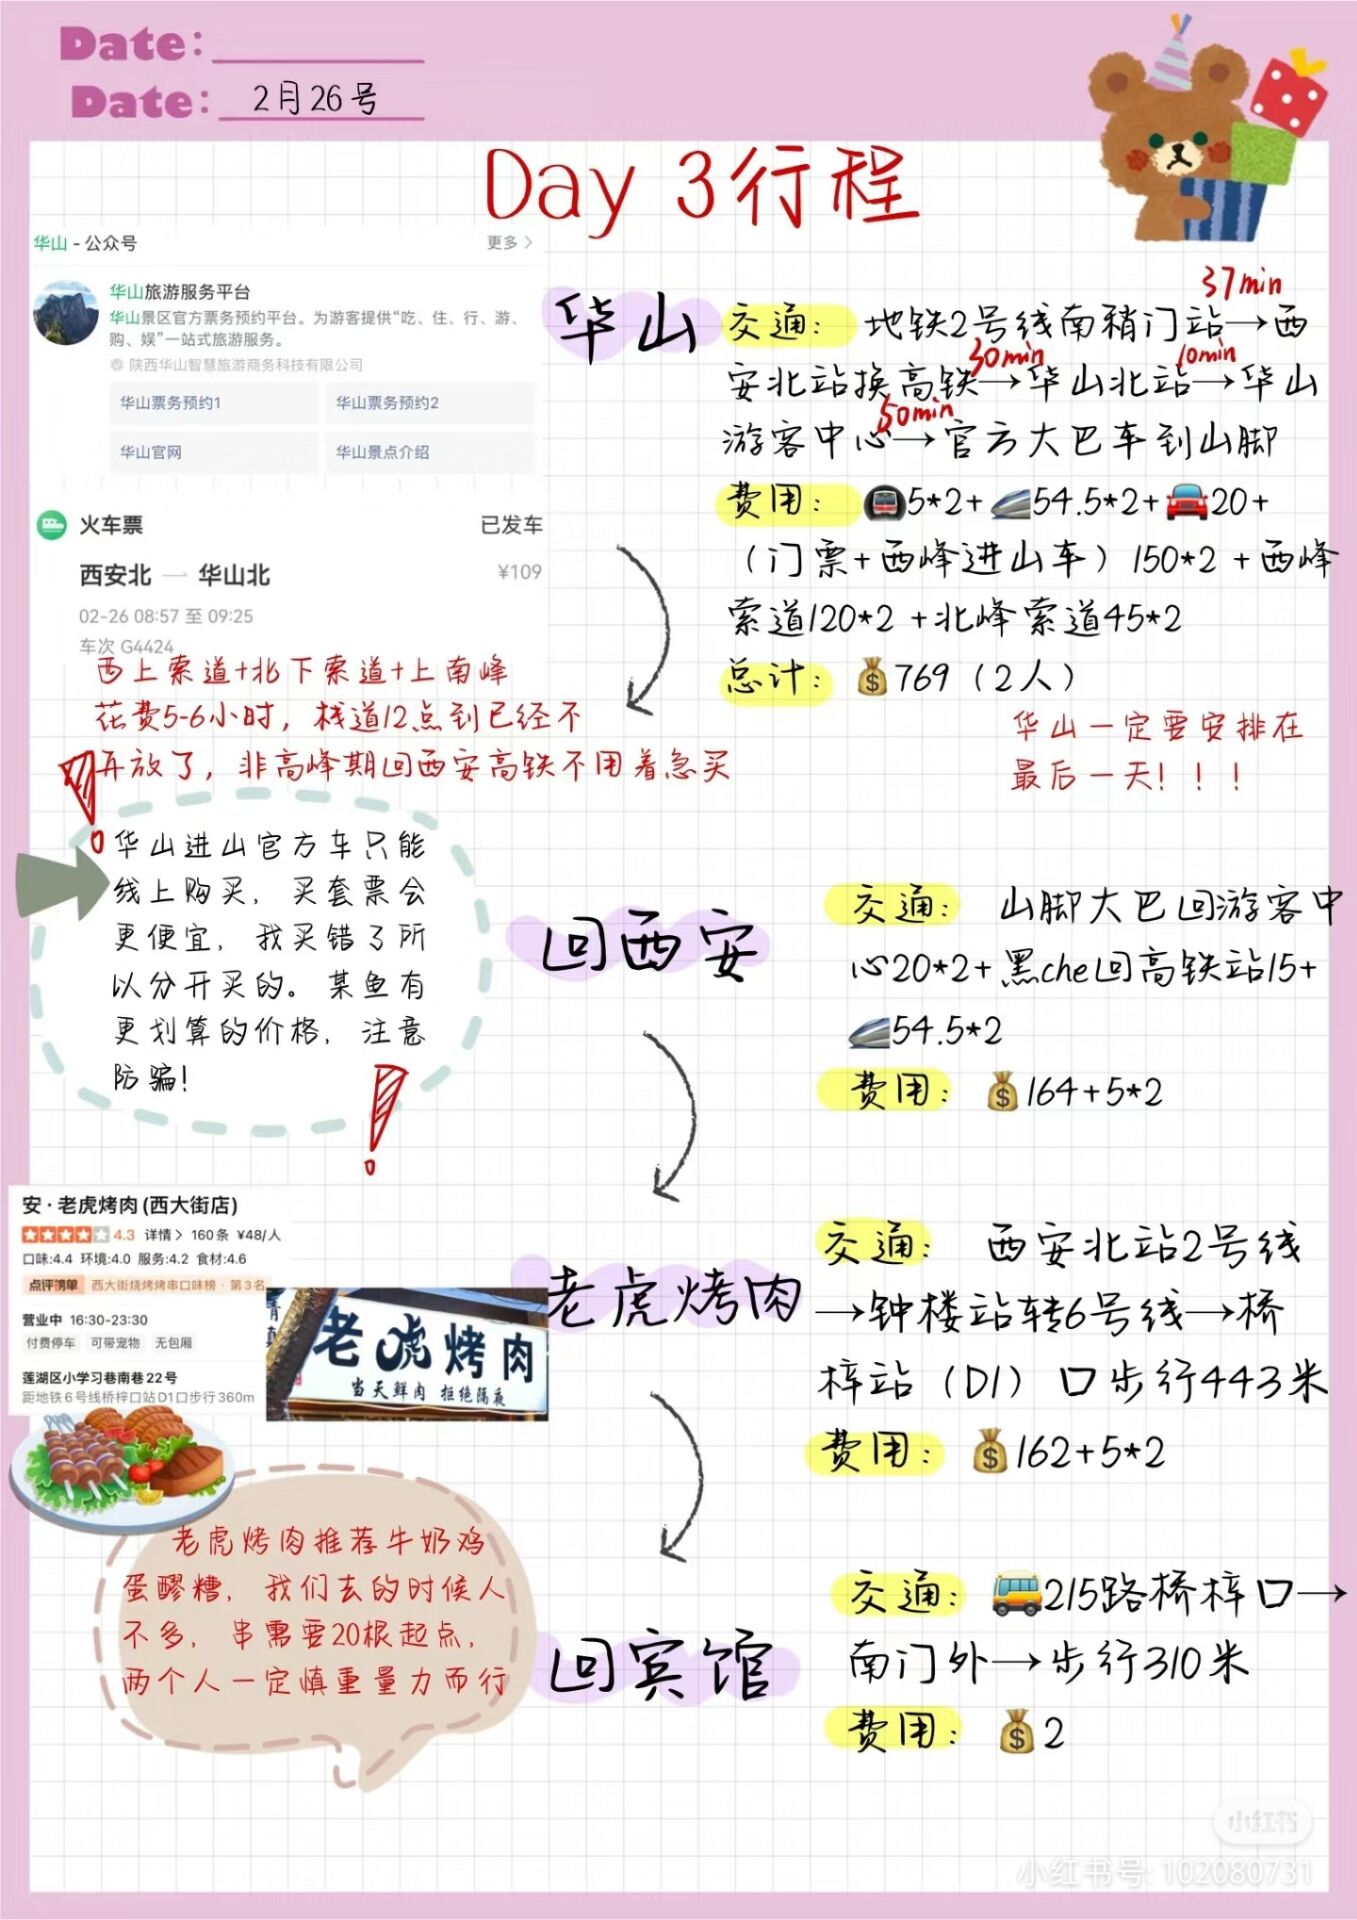 Date:
Date: 2月26号
Day 3行程
华山 - 公众号
更多 >
华山旅游服务平台
华山景区官方票务预约平台。为游客提供“吃、住、行、游、
购、娱”一站式旅游服务。
陕西华山智慧旅游商务科技有限公司
华山票务预约1
华山票务预约2
华山官网
华山景点介绍
火车票
已发车
西安北 — 华山北
¥109
02-26 08:57 至 09:25
车次 G4424
西上索道+北下索道+上南峰
花费5-6小时，栈道12点到已经不
再放了，非高峰期回西安高铁不用着急买
华山
37min
交通： 地铁2号线南稍门站→西
30min
10min
安北站换高铁→华山北站→华山
50min
游客中心→官方大巴车到山脚
费用： 🚇5*2+🚄54.5*2+🚘20+
（门票+西峰进山车）150*2 +西峰
索道120*2 +北峰索道45*2
总计： 💰769（2人）
华山一定要安排在
最后一天！！！
华山进山官方车只能
线上购买，买套票会
更便宜，我买错了所
以分开买的。某鱼有
更划算的价格，注意
防骗!
回西安
交通： 山脚大巴回游客中
心20*2+黑che回高铁站15+
🚄54.5*2
费用： 💰164+5*2
安·老虎烤肉(西大街店)
4.3 详情> 160条 ¥48/人
口味:4.4 环境:4.0 服务:4.2 食材:4.6
点评榜单 西大街烧烤烤串口味榜·第3名
营业中 16:30-23:30
付费停车 可带宠物 无包厢
莲湖区小学习巷南巷22号
距地铁6号线桥梓口站D1口步行360m
清真
老虎烤肉
当天鲜肉 拒绝隔夜
老虎烤肉
交通： 西安北站2号线
→钟楼站转6号线→桥
梓站（D1）口步行443米
费用： 💰162+5*2
老虎烤肉推荐牛奶鸡
蛋醪糟，我们去的时候人
不多，串需要20根起点，
两个人一定慎重量力而行
回宾馆
交通： 🚌215路桥梓口→
南门外→步行310米
费用： 💰2
小红书
小红书号: 102080731